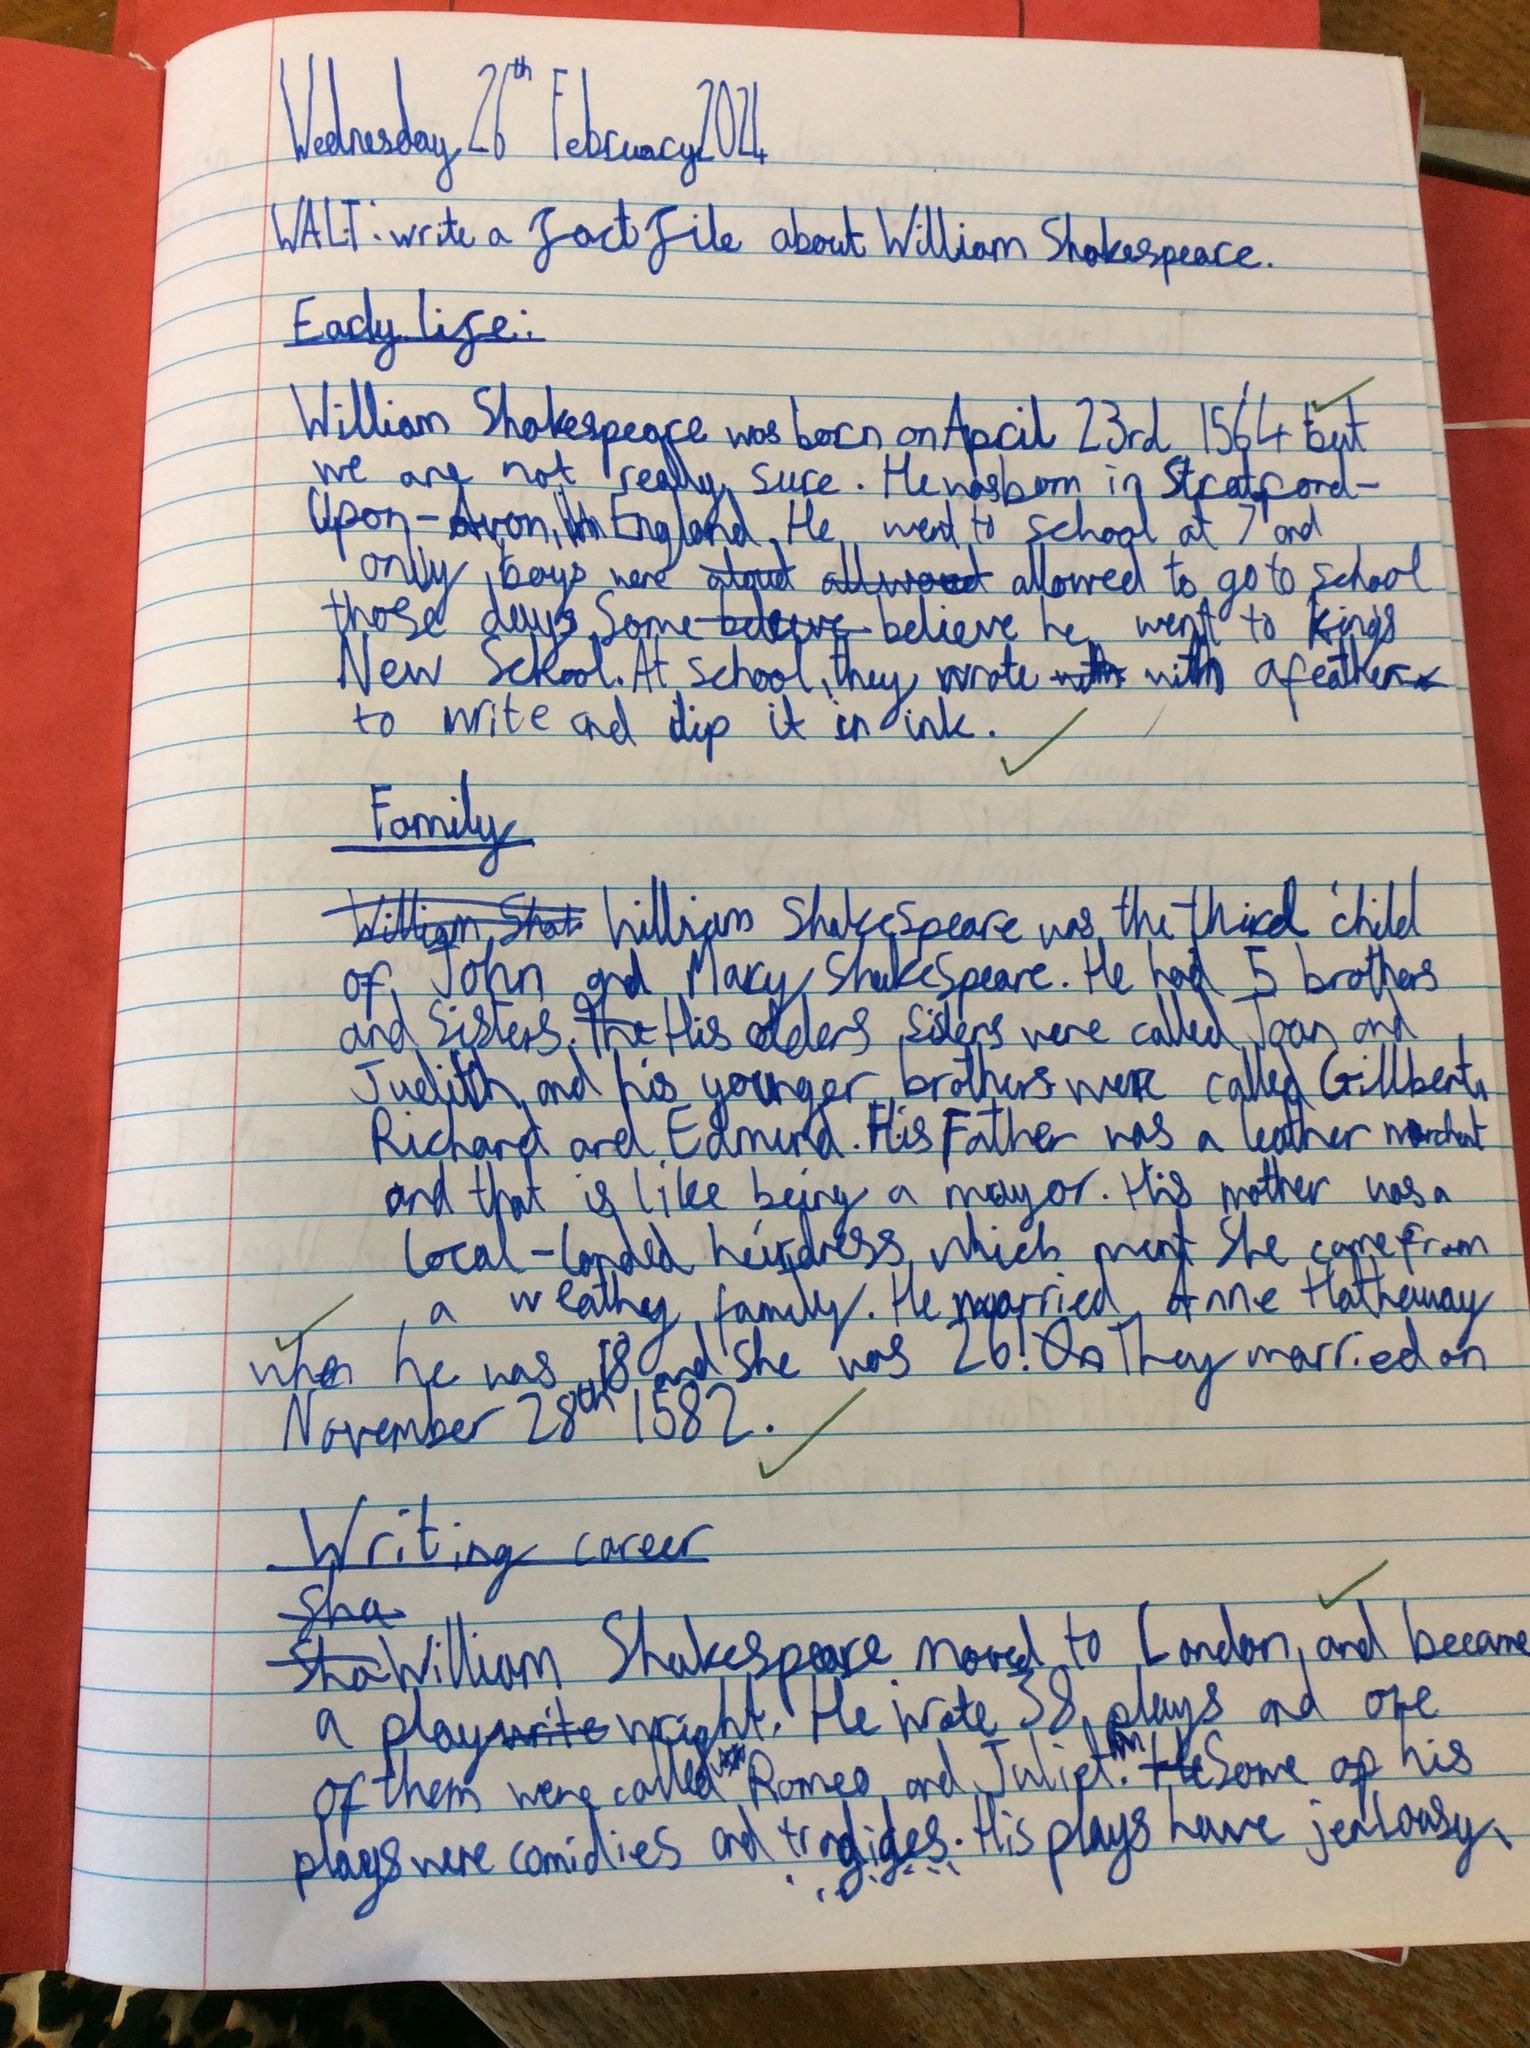 Wednesday 26th February 2024
WALT: write a fact file about William Shakespeare.
Early life:
William Shakespeare was born on April 23rd 1564 but
we are not really sure. He was born in Stratford-
Upon-Avon, in England. He went to school at 7 and
only boys were allowed to go to school
those days. Some believe he went to King's
New School. At school, they wrote with a feather
to write and dip it in ink.
Family
William Sha William Shakespeare was the third child
of John and Mary Shakespeare. He had 5 brothers
and sisters. The His olders sisters were called Joan and
Judith and his younger brothers were called Gillbert,
Richard and Edmund. His Father was a leather merchant
and that is like being a mayor. His mother was a
local-landed heirdress which ment she came from
a weathy family. He married Anne Hatheway
when he was 18 and she was 26! They married on
November 28th 1582.
Writing career
Sha
Sha William Shakespeare moved to London, and became
a playwrite wright. He wrote 38 plays and one
of them were called Romeo and Juliet. He Some of his
plays were comidies and tradgides. His plays have jealousy,